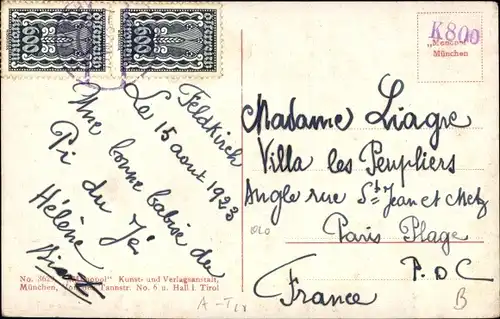 600
600
K800
„Monopol"
München
Feldkirch
Le 15 aout 1923
Une bonne babise du
Pi du Jés
Hélène
Madame Liagre
Villa les Peupliers
Angle rue St Jean et Metz
Paris Plage
P.D.C
France
Kunst- und Verlagsanstalt,
München, Tannstr. No. 6 u. Hall i. Tirol
A-Tir
B